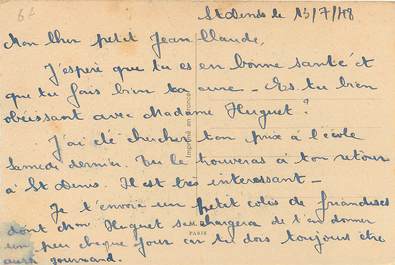 St Denis le 13/7/48
Mon cher petit Jean-Claude,
J'espère que tu es en bonne santé et
que tu fais bien ta cure - Es. tu bien
obéissant avec Madame Huguet ?
J'ai été chercher ton prix à l'école
samedi dernier. Tu le trouveras à ton retour
à St Denis. Il est très intéressant -
Je t'envoie un petit colis de friandises
dont Mme Huguet se chargera de t'en donner
un peu chaque jour car tu dois toujours être
aussi gourmand.
Imprimé en France
PARIS